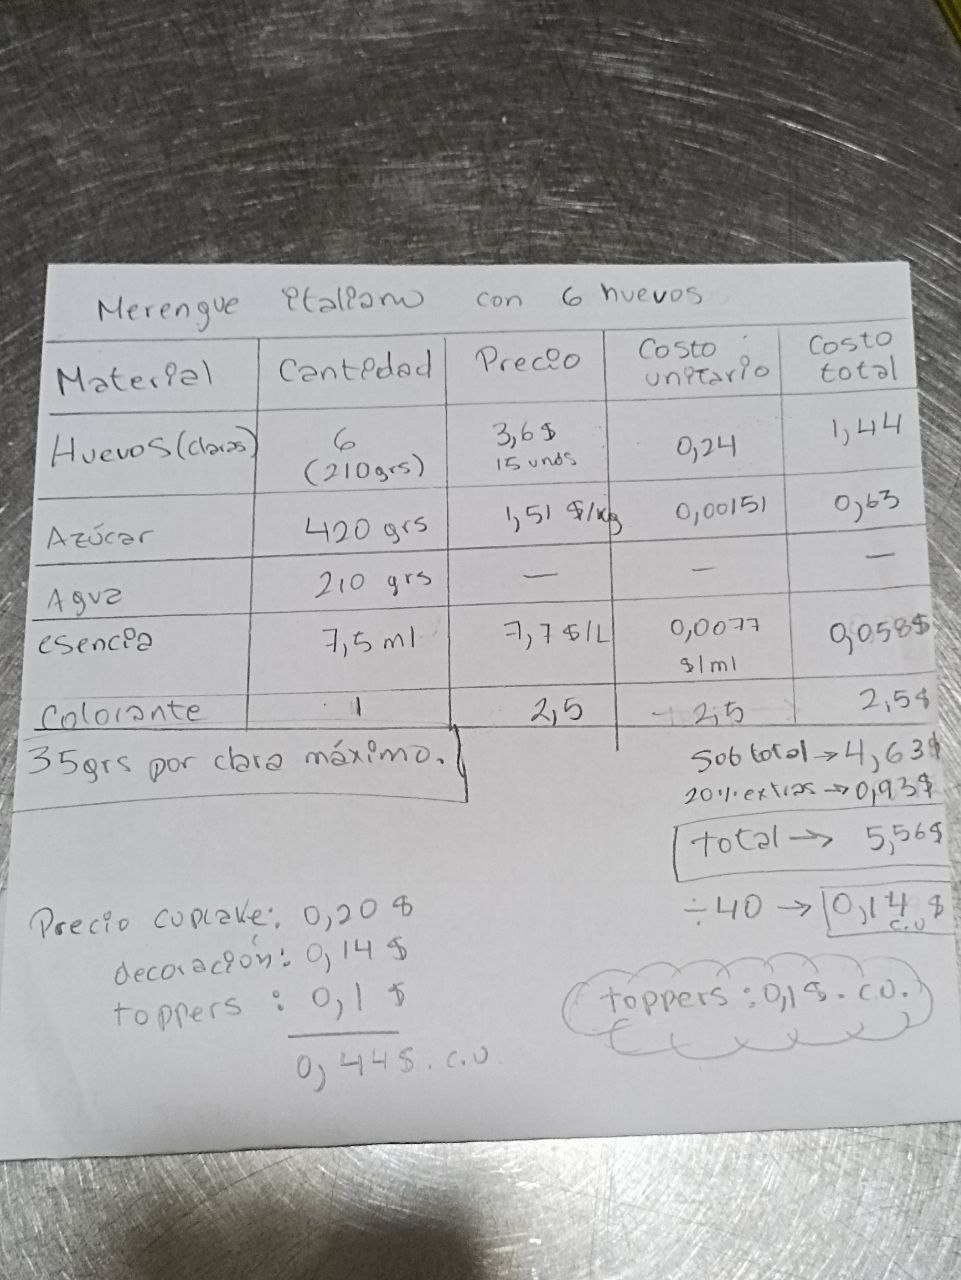 Merengue italiano con 6 huevos
Material Cantidad Precio Costo unitario Costo total
Huevos (claras) 6 (210grs) 3,6$ 15 unds 0,24 1,44
Azúcar 420 grs 1,51 $/kg 0,00151 0,63
Agua 210 grs — — —
esencia 7,5 ml 7,7 $/L 0,0077 $/ml 0,058$
Colorante 1 2,5 2,5 2,5$
35grs por clara máximo.
Sub total → 4,63$
20% extras → 0,93$
total → 5,56$
÷40 → 0,14 $ c.u
Precio cupcake: 0,20$
decoración: 0,14 $
toppers : 0,1 $
0,44$. c.u.
toppers : 0,1$. c.u.